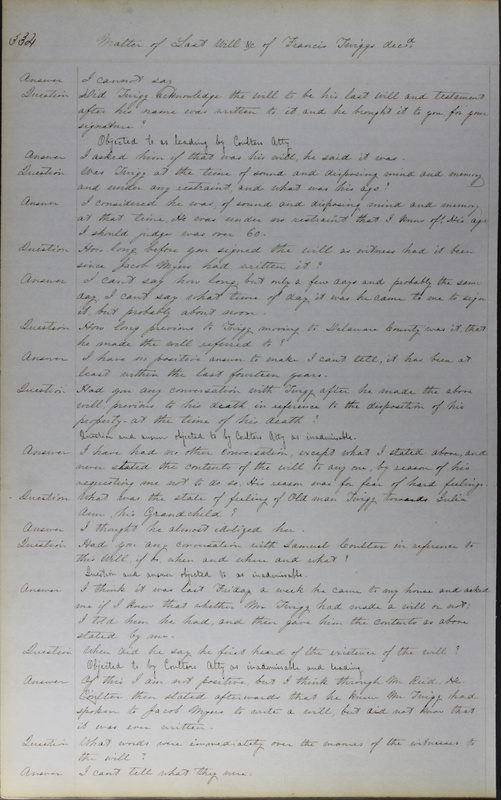 334
Matter of Last Will &c of Francis Twiggs decd.
Answer I cannot say
Question Did Twigg acknowledge the will to be his last will and testament
after his name was written to it and he brought it to you for your
signature?
Objected to as leading by Coulters Atty
Answer I asked him if that was his will, he said it was.
Question Was Twigg at the time of sound and disposing mind and memory
and under any restraint, and what was his age?
Answer I considered he was of sound and disposing mind and memory
at that time. He was under no restraint that I knew of. His age
I should judge was over 60.
Question How long before you signed the will as witness had it been
since Jacob Myers had written it?
Answer I can't say how long, but only a few days and probably the same
day. I cant say what time of day it was he came to me to sign
it, but probably about noon.
Question How long previous to Twigg moving to Delaware County was it, that
he made the will referred to?
Answer I have no positive answer to make. I cant tell, it has been at
least within the last fourteen years.
Question Had you any conversation with Twigg after he made the above
will, previous to his death in reference to the disposition of his
property at the time of his death?
Question and answer objected to by Coulters Atty as inadmissable.
Answer I have had no other conversation, except what I stated above, and
never stated the contents of the will to any one, by reason of his
requesting me not to do so. His reason was for fear of hard feelings
Question What was the state of feeling of Old man Twigg towards Julia
Ann, his Grandchild?
Answer I thought he almost idolized her.
Question Had you any conversation with Samuel Coulter in reference to
this Will, if so, when and where and what?
Question and answer objected to as inadmissable.
Answer I think it was last Friday a week he came to my house and asked
me if I knew that whether Mr Twigg had made a will or not:
I told him he had, and then gave him the contents as above
stated by me.
Question When did he say he first heard of the existence of the will?
Objected to by Coulters Atty as inadmissable and leading.
Answer Of this I am not positive, but I think through Mr Reid. He
Coulter then stated afterwards that he knew Mr Twigg had
spoken to Jacob Myers to write a will, but did not know that
it was ever written.
Question What words were immediately over the names of the witnesses to
the will?
Answer I cant tell what they were.